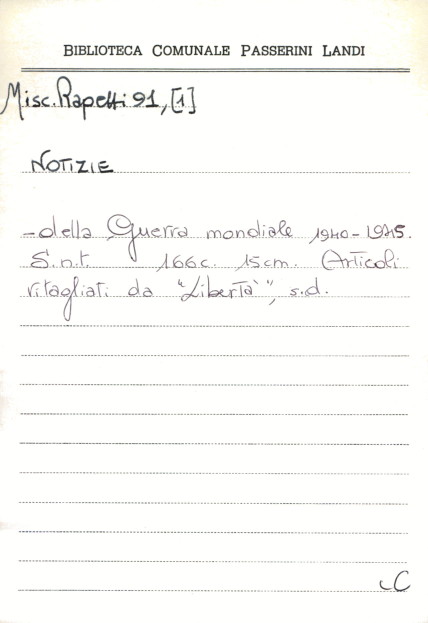 BIBLIOTECA COMUNALE PASSERINI LANDI
Misc. Rapetti 91, [1]
NOTIZIE
- della Guerra mondiale 1940-1945.
S.n.t. 166c. 15cm. (Articoli
ritagliati da "Libertà", s.d.
C